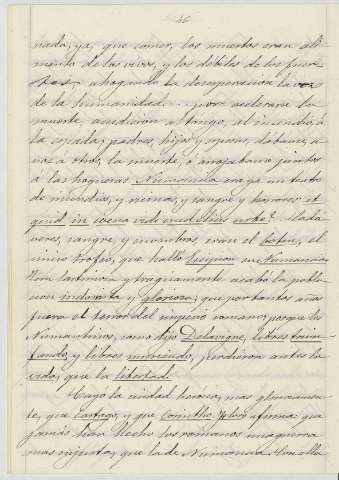 46
nada, ya, que comer, los muertos eran ali-
mento de los vivos, y los débiles de los fuer-
tes, ahogando la desesperacion la voz
de la humanidad... por acelerar la
muerte acudieron al fuego, al incendio, á
la espada; padres, hijos y esposos, dábanse, u-
nos á otros, la muerte, ó arrojabanse juntos
á las hogueras. Numancia era ya un teatro
de incendios, y ruinas, y sangre y horrores et
quid in
veres, sangre, y escombros, eran el botin, el
único trofeo, que halló Escipion en Numancia.
Tan lastimosa y trágicamente acabó la pobla-
cion indómita y gloriosa; que por tantos años
fuera el terror del imperio romano; porque los
Numantinos, como dijo Delavigne, libres triun-
fando, y libres muriendo, perdieron antes la
vida, que la libertad.
Cayó la ciudad heroica, mas gloriosamen-
te, que Cartago, y que Corintho, y afirma que
jamás han hecho los romanos una guerra
mas injusta, que la de Numancia. Con ella